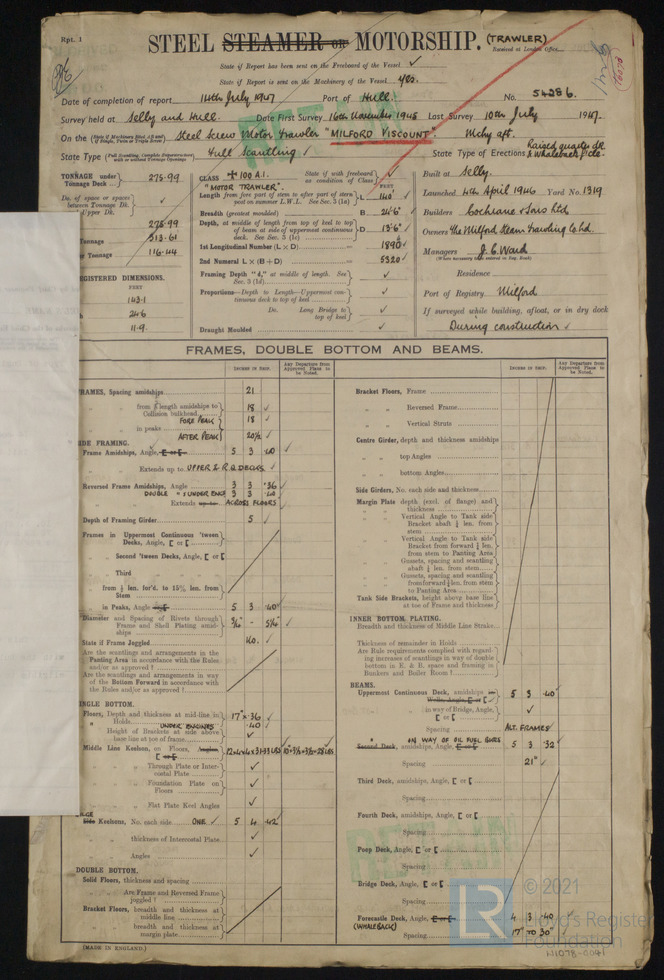 Rpt. 1
STEEL STEAMER OR MOTORSHIP. (TRAWLER)
Received at London Office
State if Report has been sent on the Freeboard of the Vessel ✓
State if Report is sent on the Machinery of the Vessel yes.
Date of completion of report 14th July 1947 Port of Hull. No. 54286.
Survey held at Selby and Hull. Date First Survey 16th November 1945 Last Survey 10th July 1947.
On the Steel Screw Motor Trawler "MILFORD VISCOUNT". Mchy aft.
State Type Full Scantling State Type of Erections Raised quarter dk. & Whaleback f'cle.
TONNAGE under Tonnage Deck 275.99
Do. of space or spaces between Tonnage Dk. Upper Dk.
275.99
Tonnage 313.61
Tonnage 116.44
REGISTERED DIMENSIONS.
FEET
143.1
24.6
11.9
CLASS ✠ 100 A.1. State if with freeboard as condition of Class
"MOTOR TRAWLER".
FEET
Length from fore part of stem to after part of stern post on summer L.W.L. See Sec. 3 (1a) L 140'
Breadth (greatest moulded) B 24'6"
Depth, at middle of length from top of keel to top of beam at side of uppermost continuous deck. See Sec. 3 (1c) D 13'6"
1st Longitudinal Number (L × D) 1890
2nd Numeral L × (B + D) 5320
Framing Depth "d," at middle of length. See Sec. 3 (1d) ✓
Proportions—Depth to Length—Uppermost continuous deck to top of keel ✓
Do. Long Bridge to top of keel ✓
Draught Moulded ✓
Built at Selby.
Launched 4th April 1946 Yard No. 1319
Builders Cochrane & Sons Ltd
Owners The Milford Steam Trawling Co Ltd.
Managers J. C. Ward
Residence
Port of Registry Milford
If surveyed while building, afloat, or in dry dock
During construction
FRAMES, DOUBLE BOTTOM AND BEAMS.
INCHES IN SHIP. Any Departure from Approved Plans to be Noted.
FRAMES, Spacing amidships 21
from length amidships to Collision bulkhead 18
in peaks FORE PEAK 18
AFTER PEAK 20½
SIDE FRAMING.
Frame Amidships, Angle, 5 3 .40
Extends up to UPPER & R.Q. DECKS
Reversed Frame Amidships, Angle 3 3 .36
DOUBLE " " UNDER ENGS 3 3 .40
Extends ACROSS FLOORS
Depth of Framing Girder 5
Frames in Uppermost Continuous 'tween Decks, Angle, [ or [
Second 'tween Decks, Angle, [ or [
Third
from ⅕ len. for'd. to 15% len. from Stem
in Peaks, Angle 5 3 .40
Diameter and Spacing of Rivets through Frame and Shell Plating amidships
State if Frame Joggled No.
Are the scantlings and arrangements in the Panting Area in accordance with the Rules and/or as approved?
Are the scantlings and arrangements in way of the Bottom Forward in accordance with the Rules and/or as approved?
SINGLE BOTTOM.
Floors, Depth and thickness at mid-line in Holds 17" × .36
UNDER ENGINES .40
Height of Brackets at side above base line at toe of frame ✓
Middle Line Keelson, on Floors, Angles, [ or [
Through Plate or Intercostal Plate ✓
Foundation Plate on Floors ✓
Flat Plate Keel Angles ✓
Side Keelsons, No. each side ONE 5 4 .42
thickness of Intercostal Plate ✓
Angles ✓
DOUBLE BOTTOM.
Solid Floors, thickness and spacing
Are Frame and Reversed Frame joggled?
Bracket Floors, breadth and thickness at middle line
breadth and thickness at margin plate
(MADE IN ENGLAND.)
INCHES IN SHIP. Any Departure from Approved Plans to be Noted.
Bracket Floors, Frame
Reversed Frame
Vertical Struts
Centre Girder, depth and thickness amidships
top Angles
bottom Angles
Side Girders, No. each side and thickness
Margin Plate depth (excl. of flange) and thickness
Vertical Angle to Tank side Bracket abaft ¼ len. from stem
Vertical Angle to Tank side Bracket from forward ¼ len. from stem to Panting Area
Gussets, spacing and scantling abaft ¼ len. from stem
Gussets, spacing and scantling from forward ¼ len. from stem to Panting Area
Tank Side Brackets, height above base line at toe of Frame and thickness
INNER BOTTOM, PLATING.
Breadth and thickness of Middle Line Strake
Thickness of remainder in Holds
Are Rule requirements complied with regarding increases of scantlings in way of double bottom in E. & B. space and framing in Bunkers and Boiler Room?
BEAMS.
Uppermost Continuous Deck, amidships 5 3 .40
in way of Bridge, Angle, [ or [
Spacing ALT. FRAMES
" IN WAY OF OIL FUEL BKRS
Second Deck, amidships, Angle, [ or [ 5 3 .32
Spacing 21"
Third Deck, amidships, Angle, [ or [
Spacing
Fourth Deck, amidships, Angle, [ or [
Spacing
Poop Deck, Angle, [ or [
Spacing
Bridge Deck, Angle, [ or [
Spacing
Forecastle Deck, Angle, [ or [ 4 3 .40
(WHALEBACK)
Spacing 17" TO 30"
RETAIN
RETAIN
LR
© 2021
Lloyd's Register
Foundation
N1078-0041